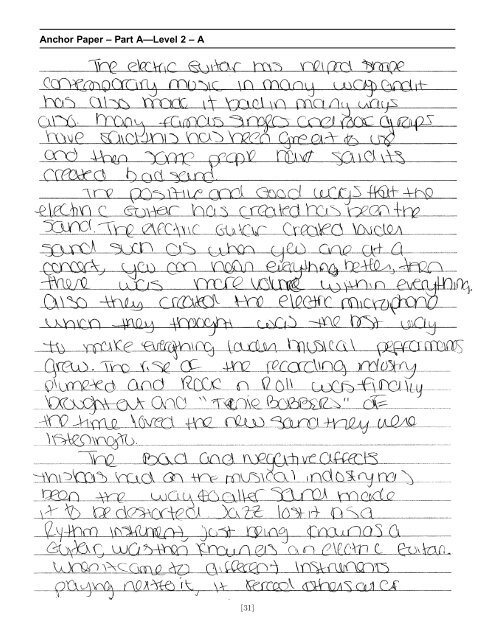 Anchor Paper – Part A—Level 2 – A
The electric Guitar has helped shape
contemporary music in many ways and it
has also made it bad in many ways
also. Many famous singers and Rock groups
have said this has been great to us
and then some people have said its
created bad sand.
The positive and Good ways that the
electric Guitar has created has been the
sand. The electric Guitar created louder
sand such as when you are at a
concert, you can hear everything better, then
there was more volume within everything.
also they created the electric microphone
which they thought was the best way
to make everything louder musical performans
grew. The rise of the recording industry
plumeted and Rock n Roll was finally
brought out and "Teenie Bobbers" of
the time loved the new sand they were
listening to.
The Bad and negative affects
this has had on the musical indostry has
been the way to alter sand made
it to be destorted Jazz lost it as a
Rythm instrument, just being known as a
Guitar, was then known as an electric Guitar.
when it came to different instruments
paying next to it, it forced others out of
[31]